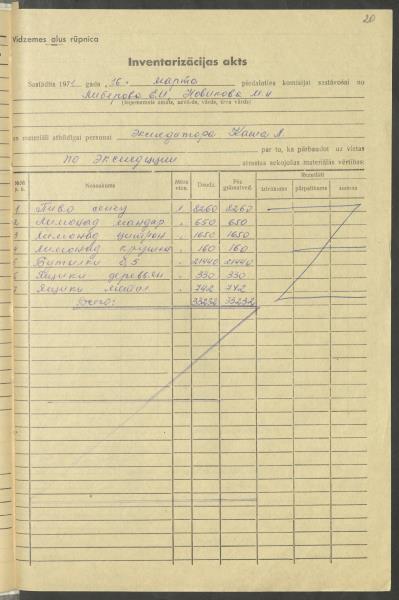 20
Vidzemes alus rūpnīca
Inventarizācijas akts
Sastādīts 1971 gada „16“ марта piedaloties komisijai sastāvošai no
Новикова М.И
(ieņemamais amats, uzvārds, vārds, tēva vārds)
materiāli atbildīgai personai Экспедитора Каша Л.
par to, ka pārbaudot uz vietas
по Экспедиции atrastas sekojošas materiālās vērtības:
Nosaukums Mērvien. Daudz. Pēc grāmatved. Rezultāti
iztrūkums pārpalikums
1 Пиво сенсу 8260 8260
2 Лимонад мандар „ 650 650
3 Лимонад цитрон „ 1650 1650
4 Лимонад крушон „ 160 160
5 Бутылки 0,5 „ 21440 21440
6 Ящики деревян „ 330 330
7 Ящики метал „ 742 742
Всего: 33232 33232